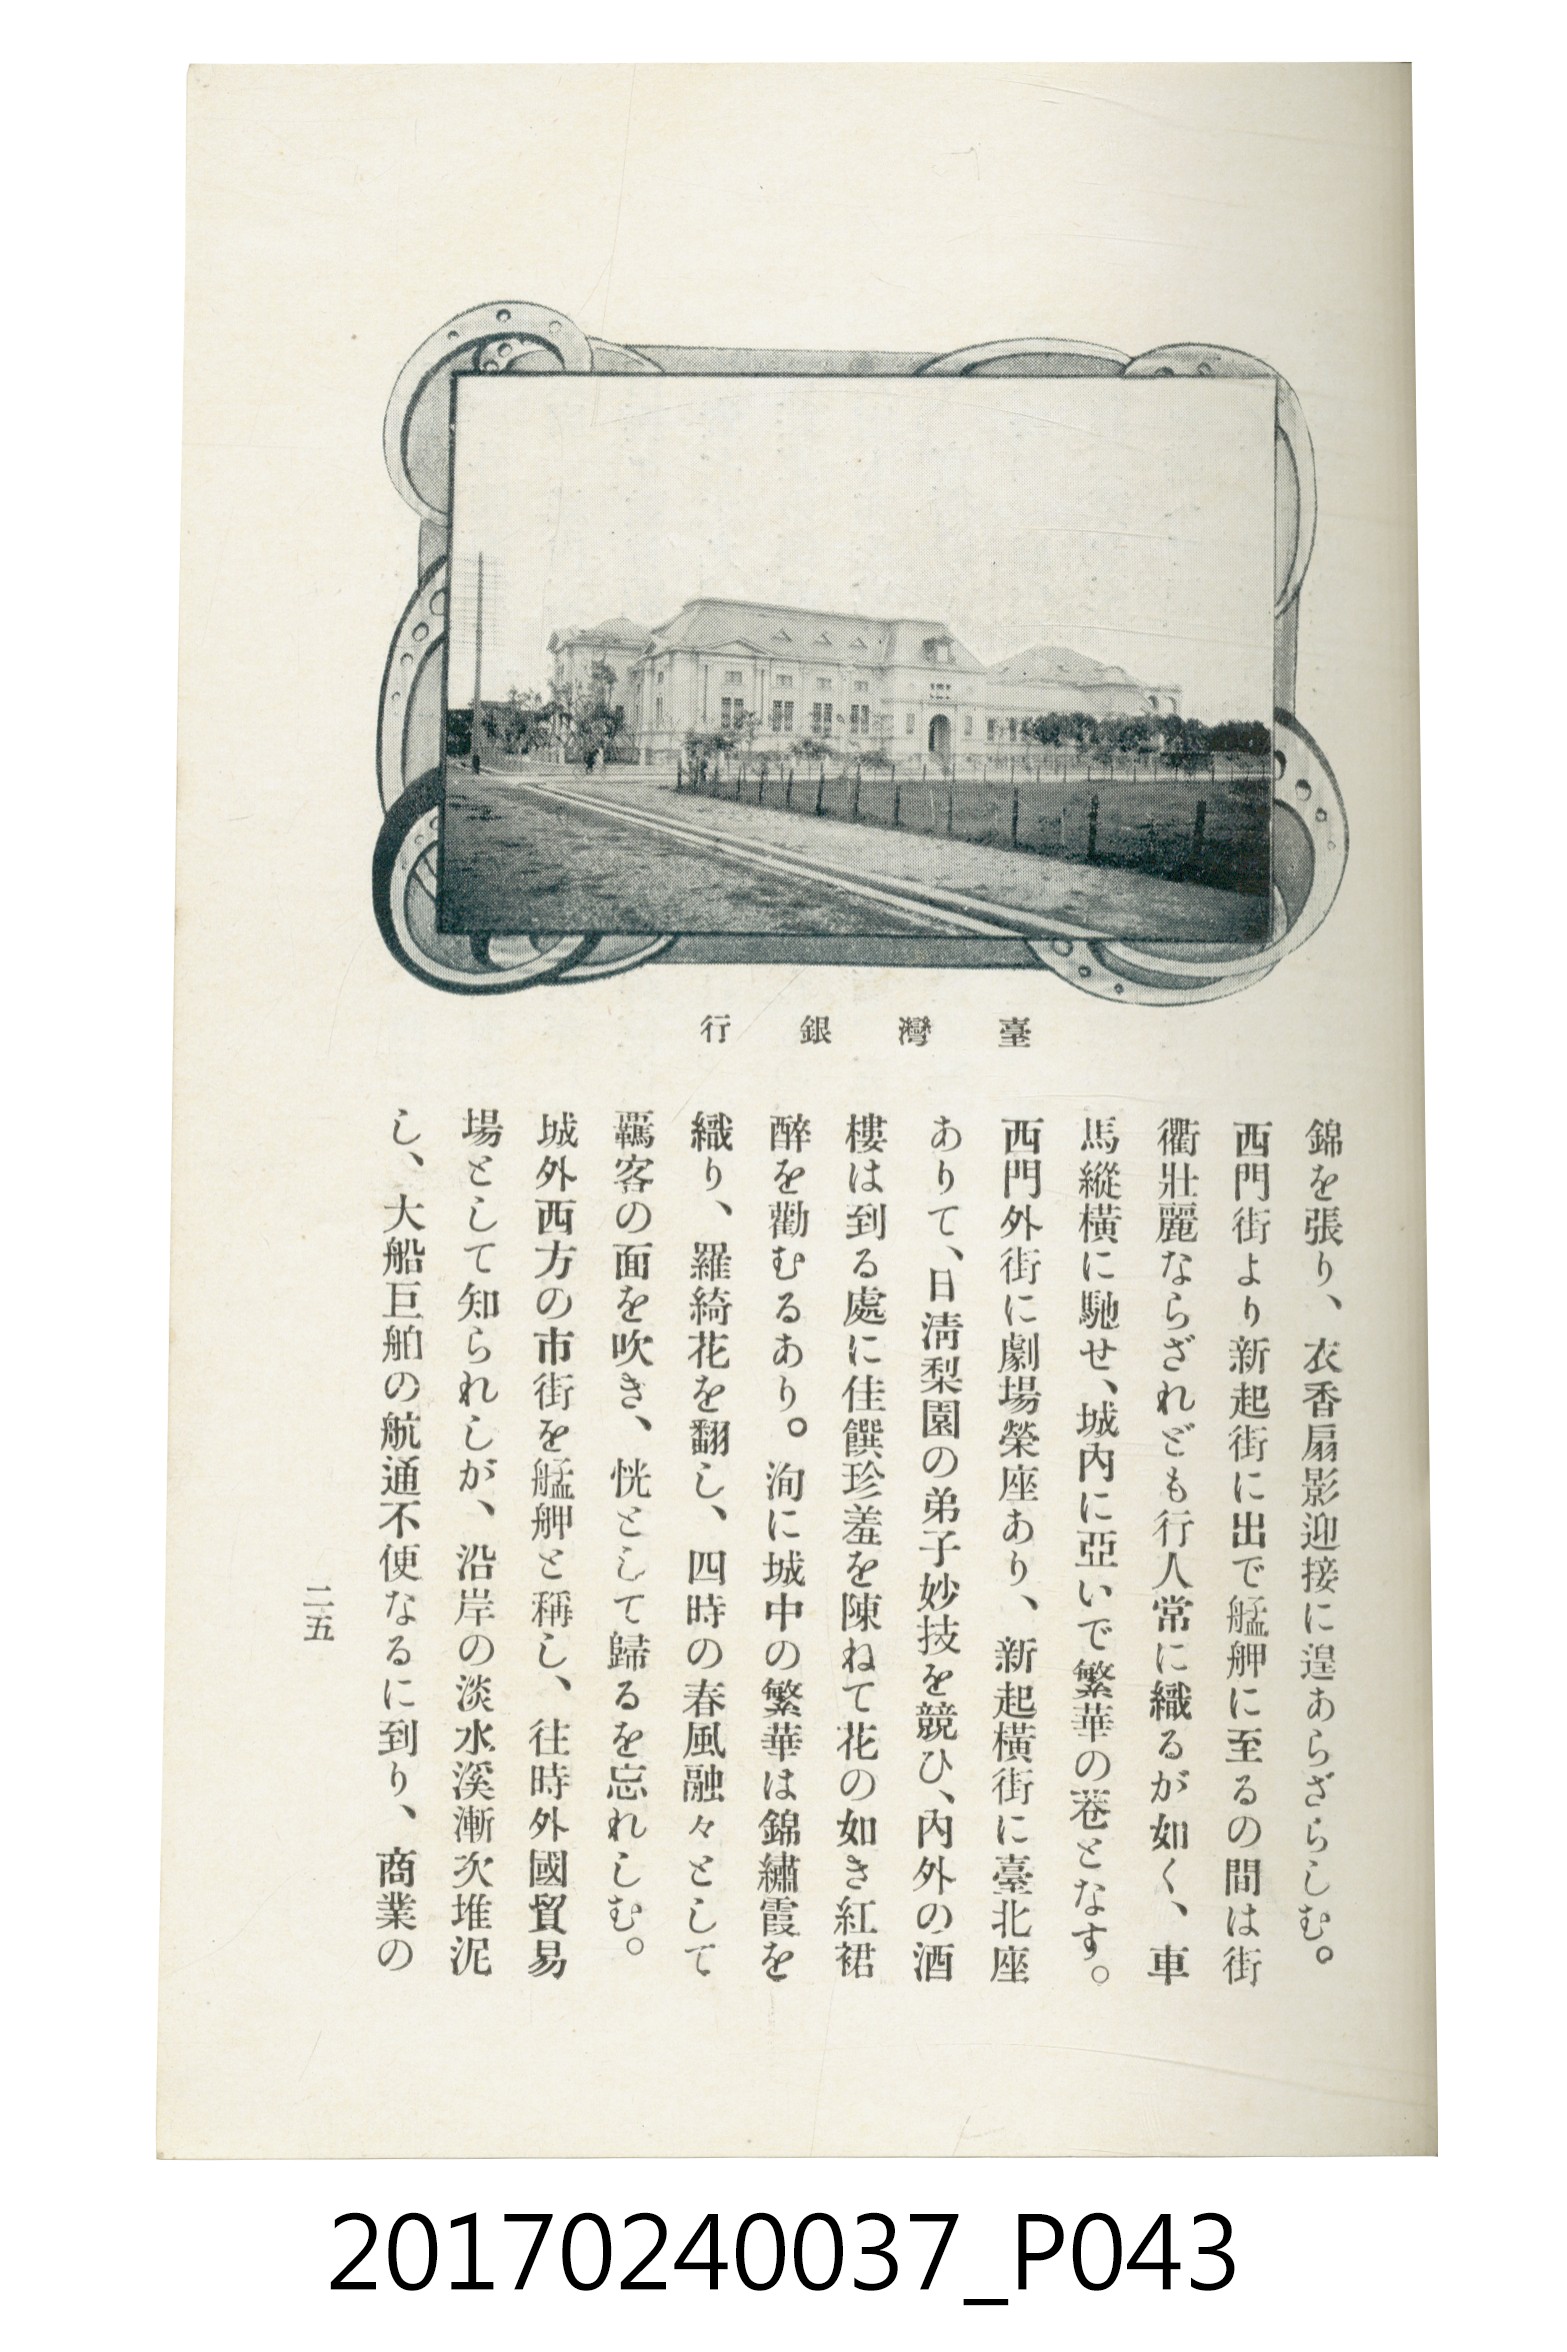 臺灣銀行
錦を張り、衣香扇影迎接に遑あらざらしむ。
西門街より新起街に出で艋舺に至るの間は街
衢壯麗ならざれども行人常に織るが如く、車
馬縱橫に馳せ、城內に亞いで繁華の巷となす。
西門外街に劇場榮座あり、新起橫街に臺北座
ありて、日淸梨園の弟子妙技を競ひ、內外の酒
樓は到る處に佳饌珍羞を陳ねて花の如き紅裙
醉を勸むるあり。洵に城中の繁華は錦繡霞を
織り、羅綺花を翻し、四時の春風融々として
羈客の面を吹き、恍として歸るを忘れしむ。
城外西方の市街を艋舺と稱し、往時外國貿易
場として知られしが、沿岸の淡水溪漸次堆泥
し、大船巨舶の航通不便なるに到り、商業の
二五
20170240037_P043